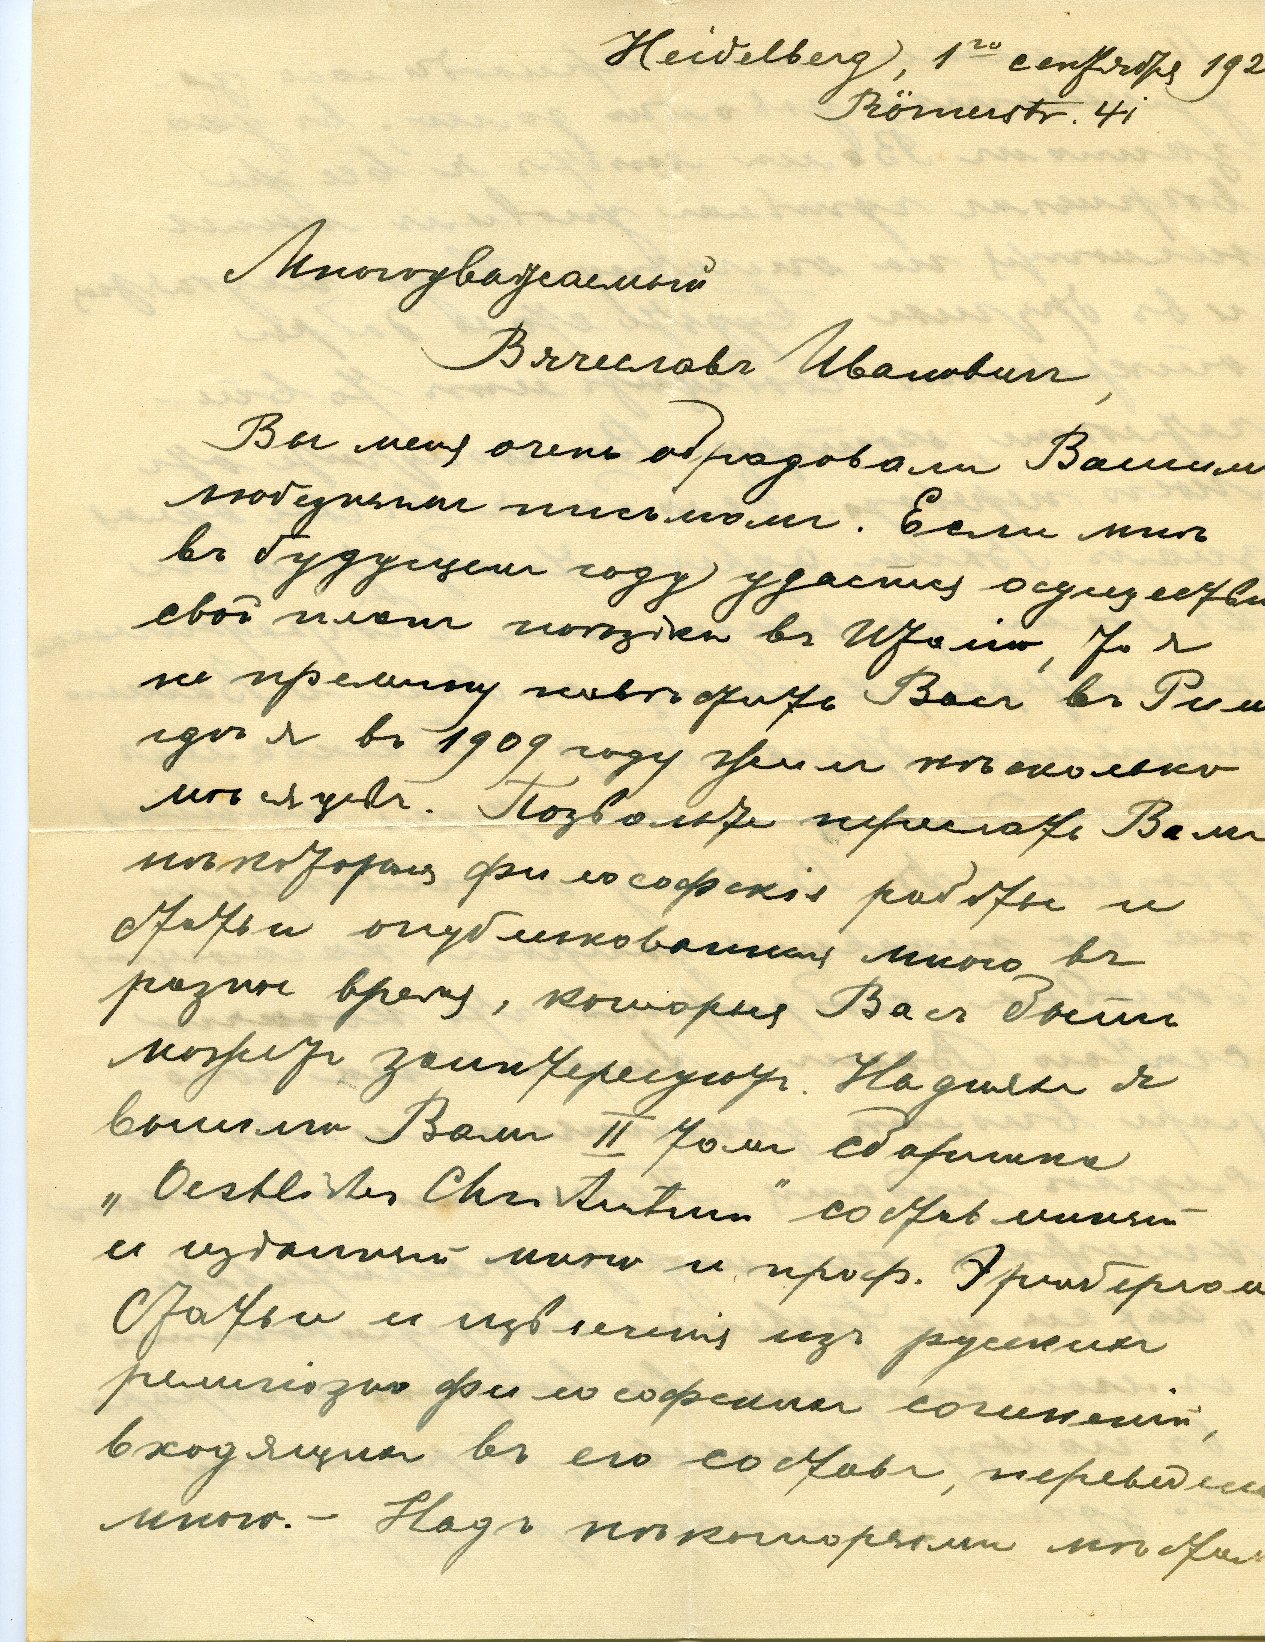 Heidelberg, 1го сентября 192
Römerstr. 4i
Многоуважаемый
Вячеславъ Ивановичъ,
Вы меня очень обрадовали Вашимъ
любезнымъ письмомъ. Если мнѣ
въ будущемъ году удастся осуществи
свой планъ поѣздки въ Италію, то я
не премину навѣстить Васъ въ Римѣ
гдѣ я въ 1909 году жилъ нѣсколько
мѣсяцевъ. Позвольте переслать Вамъ
нѣкоторыя философскія работы и
статьи опубликованныя мною въ
разное время, которыя Васъ быть
можетъ заинтересуютъ. На дняхъ я
вышлю Вамъ II томъ сборника
„Oestliches Christentum" составленный
и изданный мною и проф. Эренбергомъ
Статьи и извлеченія изъ русскихъ
религіозно философскихъ сочиненій,
входящихъ въ его составъ, переведены
мною. – Надъ нѣкоторыми мѣстам